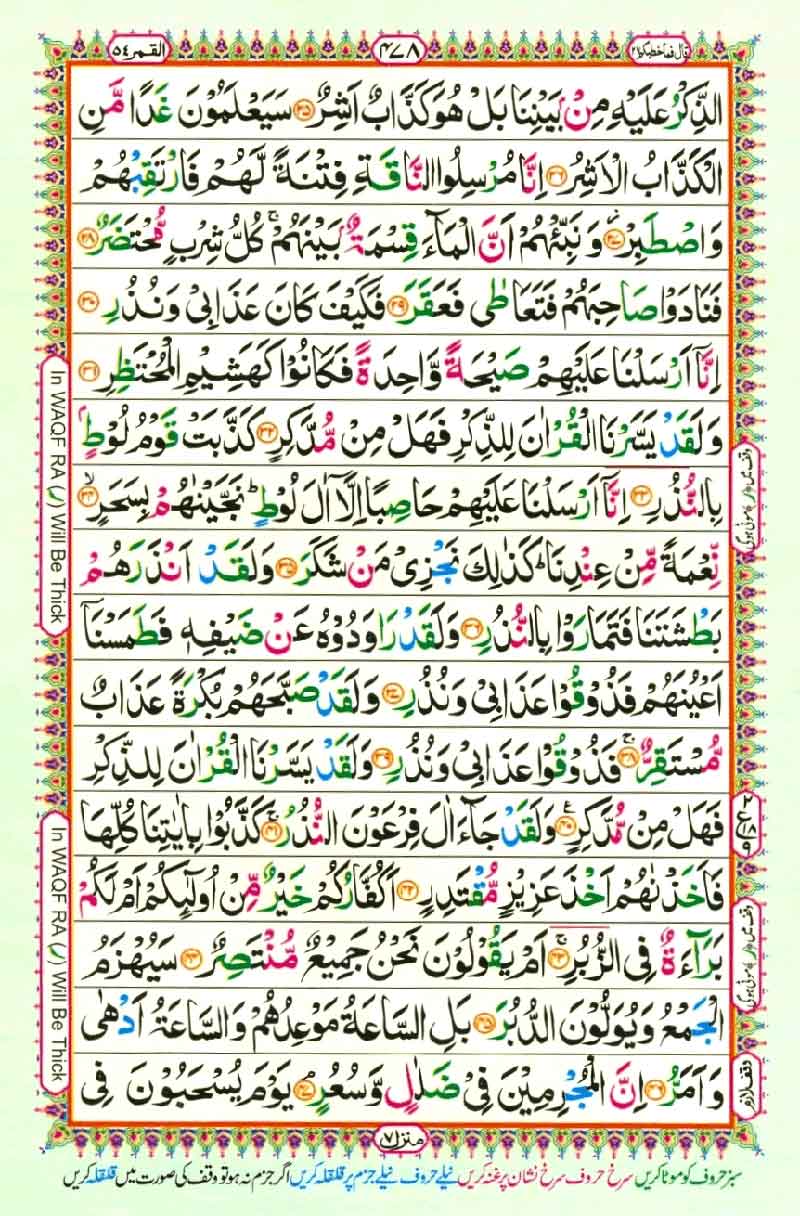 قال فما خطبكم ٢٧
٤٧٨
القمر ٥٤
الذِّكْرُ عَلَيْهِ مِنْۢ بَيْنِنَا بَلْ هُوَ كَذَّابٌ اَشِرٌ ﴿۲۵﴾ سَيَعْلَمُوْنَ غَدًا مَّنِ
الْكَذَّابُ الْاَشِرُ ﴿۲۶﴾ اِنَّا مُرْسِلُوا النَّاقَةِ فِتْنَةً لَّهُمْ فَارْتَقِبْهُمْ
وَاصْطَبِرْ ﴿۲۷﴾ وَنَبِّئْهُمْ اَنَّ الْمَآءَ قِسْمَةٌۢ بَيْنَهُمْ ۚ كُلُّ شِرْبٍ مُّحْتَضَرٌ ﴿۲۸﴾
فَنَادَوْا صَاحِبَهُمْ فَتَعَاطٰى فَعَقَرَ ﴿۲۹﴾ فَكَيْفَ كَانَ عَذَابِىْ وَنُذُرِ ﴿۳۰﴾
اِنَّاۤ اَرْسَلْنَا عَلَيْهِمْ صَيْحَةً وَّاحِدَةً فَكَانُوْا كَهَشِيْمِ الْمُحْتَظِرِ ﴿۳۱﴾
وَلَقَدْ يَسَّرْنَا الْقُرْاٰنَ لِلذِّكْرِ فَهَلْ مِنْ مُّدَّكِرٍ ﴿۳۲﴾ كَذَّبَتْ قَوْمُ لُوْطٍۭ
بِالنُّذُرِ ﴿۳۳﴾ اِنَّاۤ اَرْسَلْنَا عَلَيْهِمْ حَاصِبًا اِلَّاۤ اٰلَ لُوْطٍ ؕ نَجَّيْنٰهُمْ بِسَحَرٍ ۙ﴿۳۴﴾
نِّعْمَةً مِّنْ عِنْدِنَا ؕ كَذٰلِكَ نَجْزِىْ مَنْ شَكَرَ ﴿۳۵﴾ وَلَقَدْ اَنْذَرَهُمْ
بَطْشَتَنَا فَتَمَارَوْا بِالنُّذُرِ ﴿۳۶﴾ وَلَقَدْ رَاوَدُوْهُ عَنْ ضَيْفِهٖ فَطَمَسْنَاۤ
اَعْيُنَهُمْ فَذُوْقُوْا عَذَابِىْ وَنُذُرِ ﴿۳۷﴾ وَلَقَدْ صَبَّحَهُمْ بُكْرَةً عَذَابٌ
مُّسْتَقِرٌّ ۚ﴿۳۸﴾ فَذُوْقُوْا عَذَابِىْ وَنُذُرِ ﴿۳۹﴾ وَلَقَدْ يَسَّرْنَا الْقُرْاٰنَ لِلذِّكْرِ
فَهَلْ مِنْ مُّدَّكِرٍ ﴿۴۰﴾ وَلَقَدْ جَآءَ اٰلَ فِرْعَوْنَ النُّذُرُ ۚ﴿۴۱﴾ كَذَّبُوْا بِاٰيٰتِنَا كُلِّهَا
فَاَخَذْنٰهُمْ اَخْذَ عَزِيْزٍ مُّقْتَدِرٍ ﴿۴۲﴾ اَكُفَّارُكُمْ خَيْرٌ مِّنْ اُولٰٓئِكُمْ اَمْ لَكُمْ
بَرَآءَةٌ فِى الزُّبُرِ ۚ﴿۴۳﴾ اَمْ يَقُوْلُوْنَ نَحْنُ جَمِيْعٌ مُّنْتَصِرٌ ﴿۴۴﴾ سَيُهْزَمُ
الْجَمْعُ وَيُوَلُّوْنَ الدُّبُرَ ﴿۴۵﴾ بَلِ السَّاعَةُ مَوْعِدُهُمْ وَالسَّاعَةُ اَدْهٰى
وَاَمَرُّ ﴿۴۶﴾ اِنَّ الْمُجْرِمِيْنَ فِىْ ضَلٰلٍ وَّسُعُرٍ ۘ﴿۴۷﴾ يَوْمَ يُسْحَبُوْنَ فِى
In WAQF RA (ر) Will Be Thick
In WAQF RA (ر) Will Be Thick
وقف میں (ر) موٹی ہوگی
وقف میں (ر) موٹی ہوگی
وقف لازم
منزل ٧
سبز حروف کو موٹا کریں سرخ حروف سرخ نشان پر غنہ کریں نیلے حروف نیلے جزم پر قلقلہ کریں اگر جزم نہ ہو تو وقف کی صورت میں قلقلہ کریں